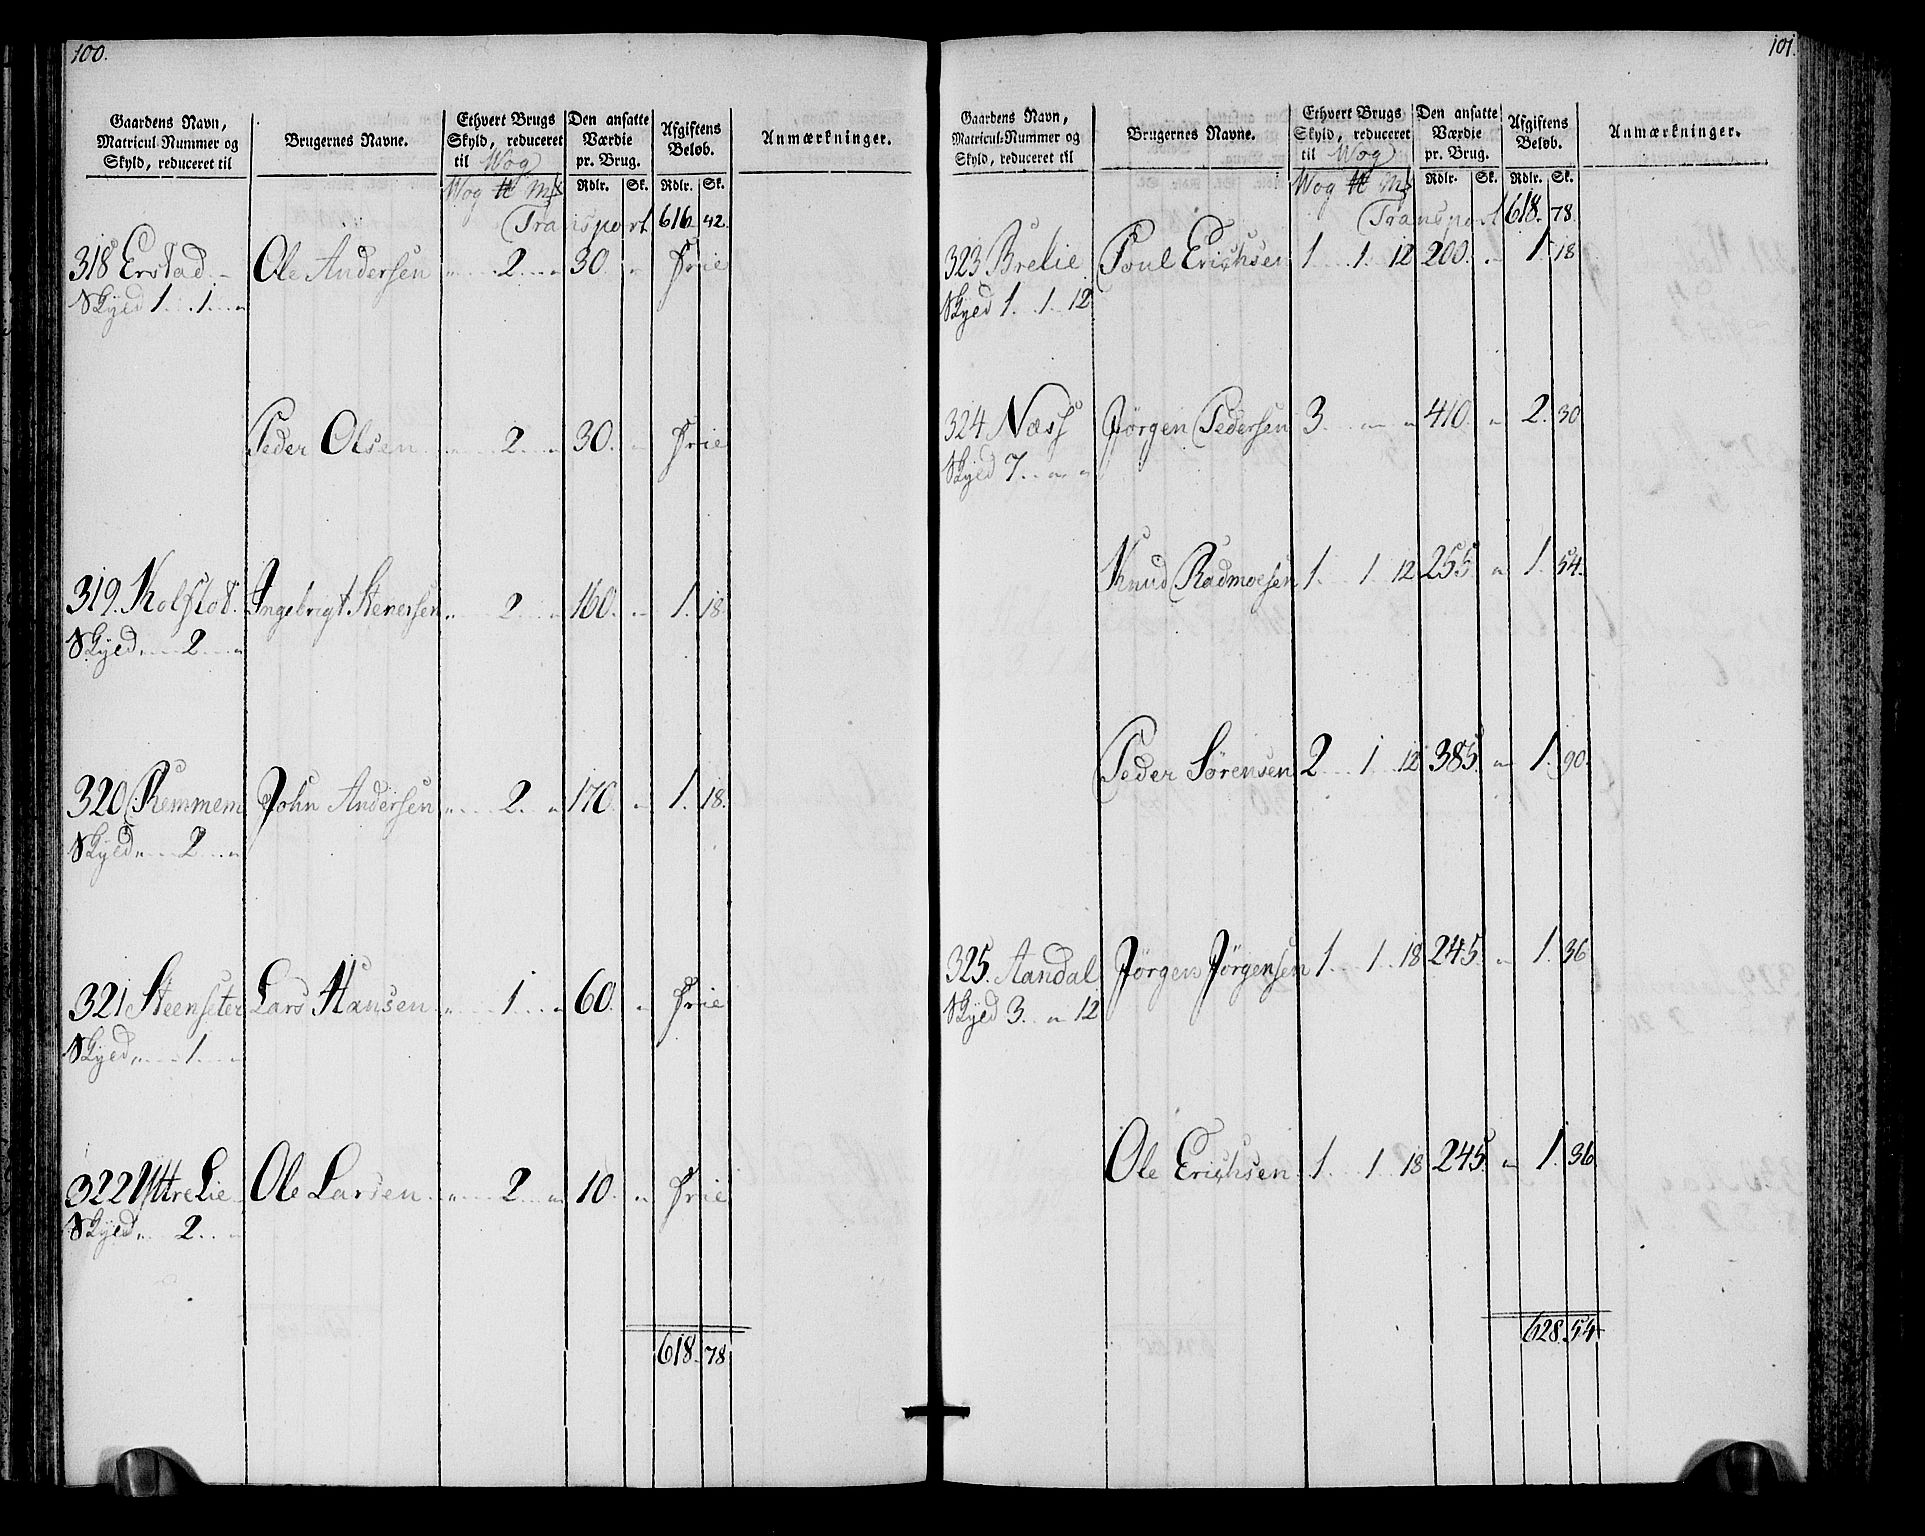 100.
Gaardens Navn, Matricul-Nummer og Skyld, reduceret til | Brugernes Navne. | Ethvert Brugs Skyld, reduceret til Wog | Den ansatte Værdie pr. Brug. | Afgiftens Beløb. | Anmærkninger.
Wog ℔ Mk | Rdlr. | Sk. | Rdlr. | Sk.
Transport 616. 42.
318 Erstad Ole Andersen " 2 " 30. " Frie
Skyld 1 1 "
Peder Olsen " 2 " 30. " Frie
319. Kolflot. Ingebrigt Stenersen " 2 " 160. " 1. 18.
Skyld " 2 "
320 Remmem John Andersen " 2 " 170. " 1. 18.
Skyld " 2 "
321 Steenseter Lars Hansen " 1 " 60. " Frie
Skyld " 1 "
322 Yttre Lie Ole Larsen " 2 " 10. " Frie
Skyld " 2 "
618. 78
101.
Gaardens Navn, Matricul-Nummer og Skyld, reduceret til | Brugernes Navne. | Ethvert Brugs Skyld, reduceret til Wog | Den ansatte Værdie pr. Brug. | Afgiftens Beløb. | Anmærkninger.
Wog ℔ Mk | Rdlr. | Sk. | Rdlr. | Sk.
Transport 618. 78.
323 Brelie Poul Erichsen 1 1 12 200. " 1. 18
Skyld 1. 1. 12
324 Næss Jørgen Pedersen 3. " " 410. " 2. 30
Skyld 7. " "
Knud Rasmussen 1. 1 12 255 " 1. 54.
Peder Sørensen 2 1 12 385. " 1. 90.
325. Aandal Jørgen Jørgensen 1 1 18 245. " 1. 36
Skyld 3. " 12
Ole Erichsen 1 1 18 245. " 1. 36
628. 54